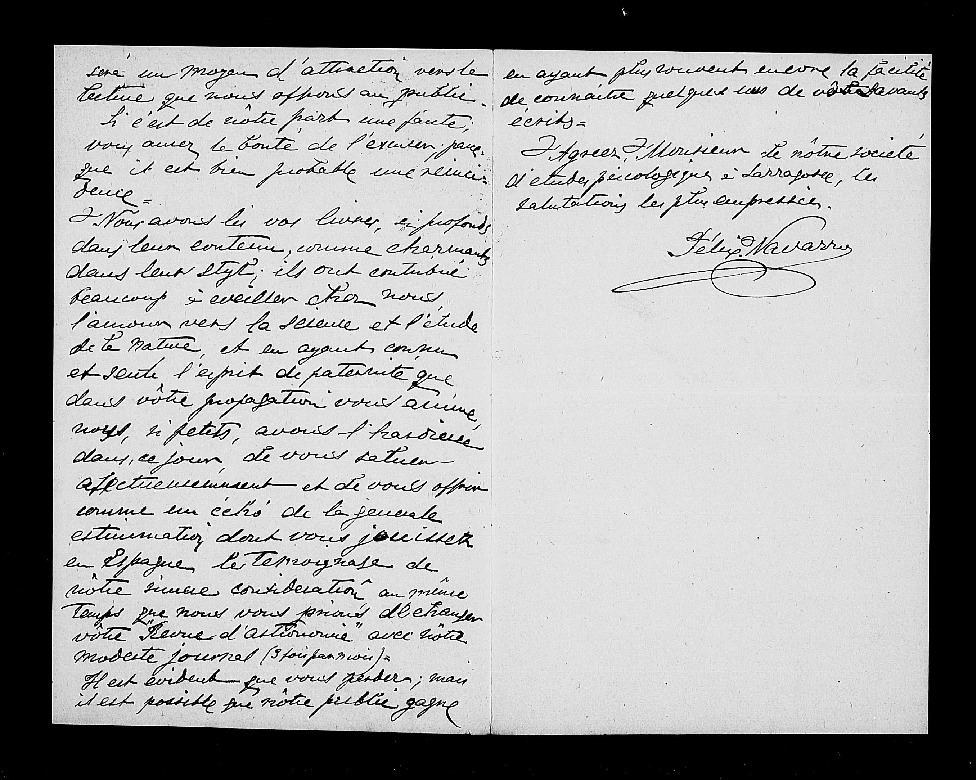 sera un moyen d'attraction vers la
lecture que nous offrons au public.
Si c'est de nôtre part une faute,
vous aurez la bonté de l'excuser, parce-
que it est bien probable une réinci-
dence =
Nous avons lu vos livres, si profonds
dans leur contenu, comme charmants
dans leur style; ils ont contribué
beaucoup à eveiller chez nous,
l'amour vers la sciense et l'étude
de la nature, et en ayant connu
et senti l'esprit de paternité que
dans vôtre propagation vous anime,
nous, si petits, avons l'hardiesse
dans, ce jour, de vous saluer
affectueusement et de vous offrir
comme un écho de la generale
estimmation dont vous jouissez
en Espagne le temoignage de
nôtre sincere consideration au même
temps que nous vous prions d'echanger
vôtre "Revue d'astronomie" avec nôtre
modeste journal (3 fois par mois) =
Il est évident que vous perdez; mais
il est possible que nôtre public gagne
en ayant plus souvent encore la facilité
de connaître quelques uns de vôtre savants
écrits =
Agreez, Monsieur de nôtre societé
d'etudes psicologiques à Sarragosse, les
salutations les plus empressées.
Félix Navarro